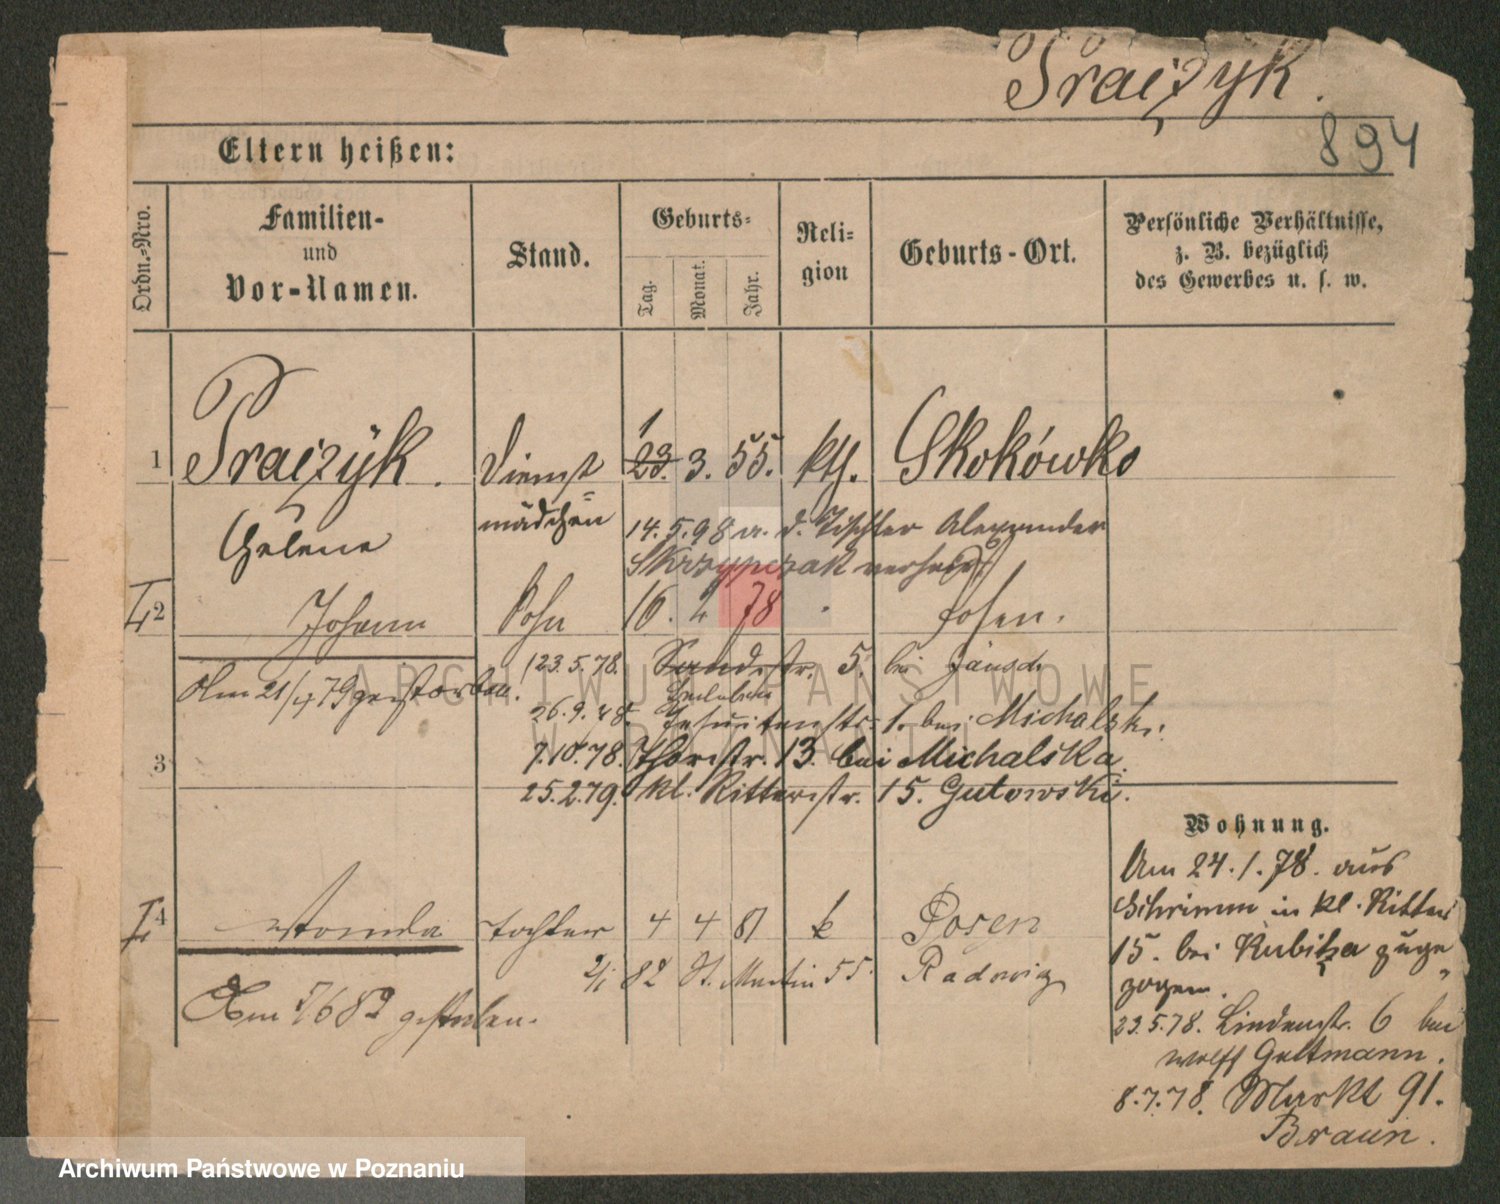 Frączyk.
894
Eltern heißen:
Ordn.-Nro.
Familien-
und
Vor-Namen.
Stand.
Geburts-
Tag.
Monat.
Jahr.
Reli-
gion
Geburts-Ort.
Persönliche Verhältnisse,
z. B. bezüglich
des Gewerbes u. s. w.
1
Frączyk.
Helene
Dienst
mädchen
1
23. 3. 55. kth. Skokówko
14. 5. 98 m. d. Tischler Alexander
Skrzypczak verheir.
2 Johann Sohn 16. 2 78 Posen.
Am 21/4 79 gestorben.
23.5.78. Sandstr. 5. bei Jänsch
26.9.78. Jesuitenstr. 1. bei Michalska.
7.10.78. Thorstr. 13. bei Michalska.
3
25.2.79. kl. Ritterstr. 15. Gutowski.
Wohnung.
Am 24.1.78. aus
Schrimm in kl. Ritter
15. bei Kubitza zuge
zogen.
23.5.78. Lindenstr. 6 bei
Wolff Galtmann.
8.7.78. Markt 91.
Braun.
4 Wanda Tochter 4 4 81 k Posen
2/1 82 St. Martin 55. Radowicz
Am 7682 gestorben.
ARCHIWUM PAŃSTWOWE
W POZNANIU
Archiwum Państwowe w Poznaniu